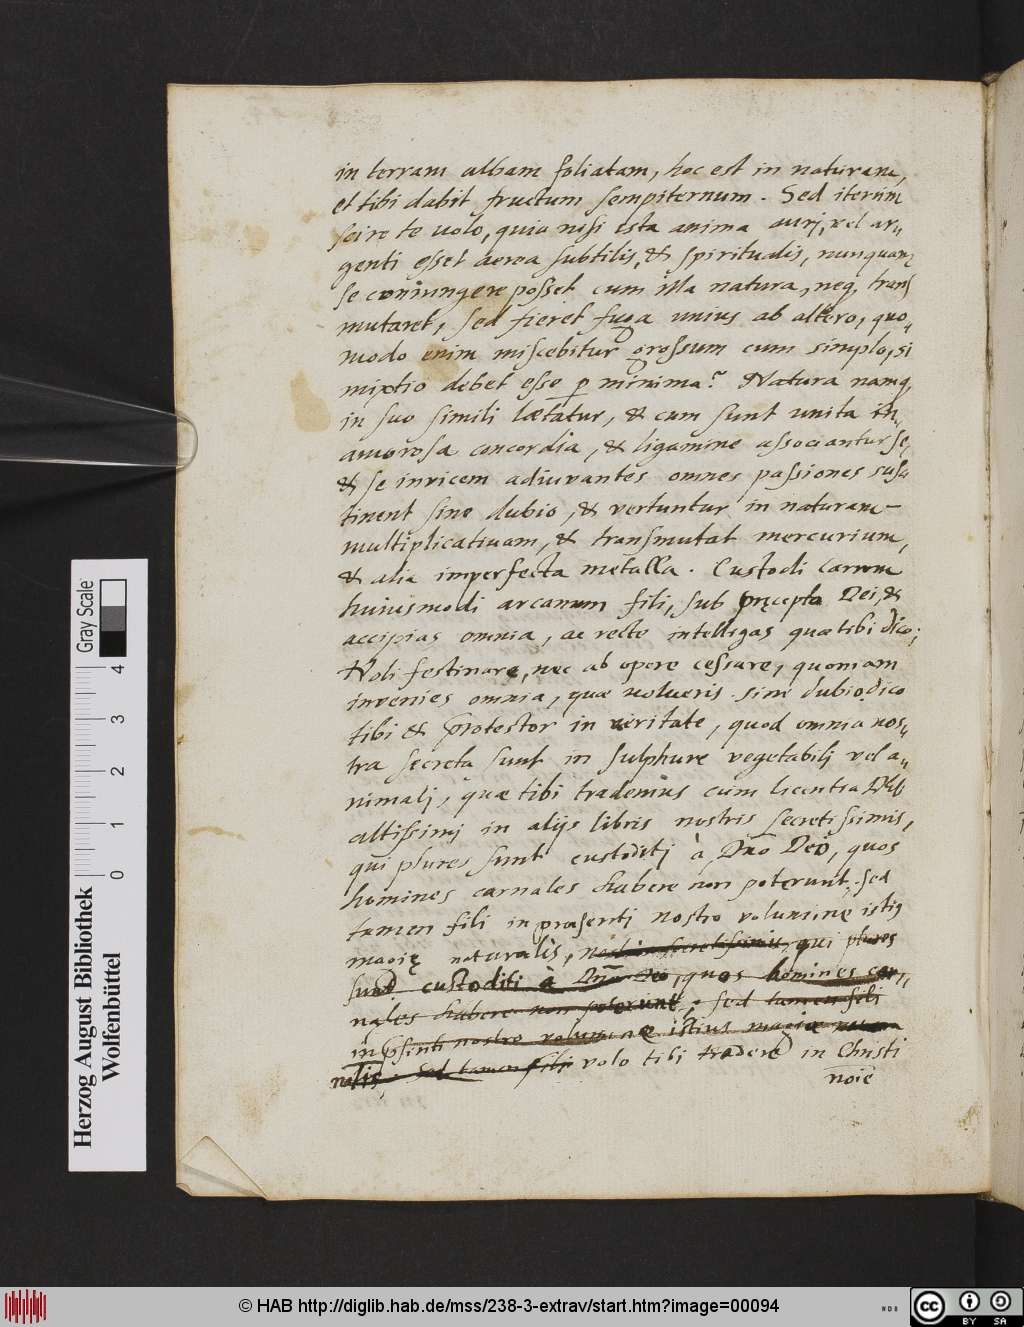 in terram albam foliatam, hoc est in naturam,
et tibi dabit fructum sempiternum. Sed iterum
scire te uolo, quia nisi ista anima aurj, vel ar„
genti esset aerea subtilis, & spiritualis, nunquam
se coniungere posset cum illa natura, neq, trans
mutaret, sed fieret fuga unius ab altero, quo„
modo enim miscebitur grossum cum simplo, si
mixtio debet esse p minima? Natura namq,
in suo simili lætatur, & cum sunt unita in„
amorosa concordia, & ligamine associantur se,
& se invicem adiuvantes omnes passiones sus„
tinent sine dubio, & vertuntur in naturam
multiplicativam, & transmutat mercurium,
& alia imperfecta metalla. Custodi carum
huiusmodi arcanum fili, sub pręcepto Dei, &
accipias omnia, ac recte intelligas quæ tibi dico;
Noli festinare, nec ab opere cessare, quoniam
invenies omnia, quæ uolueris. sine dubio dico
tibi & protestor in veritate, quod omnia nos„
tra secreta sunt in sulphure vegetabilj vel a„
nimalj, quæ tibi trademus cum licentia Dei
altissimj in alijs libris nostris secretissimis,
qui plures sunt custoditj à Dno Deo, quos
homines carnales habere non poterunt; sed
tamen fili in præsentj nostro volumine istiq
magię naturalis, qui plures
sunt custoditi à Dno Deo, quos homines car„
nales habere non poterunt, sed tamen fili
in psenti nostro volumine istius magiæ natu
ralis sed tamen fili volo tibi tradere in Christi
noie
Herzog August Bibliothek
Wolfenbüttel
Gray Scale
0 1 2 3 4
© HAB http://diglib.hab.de/mss/238-3-extrav/start.htm?image=00094
NDB
cc BY SA